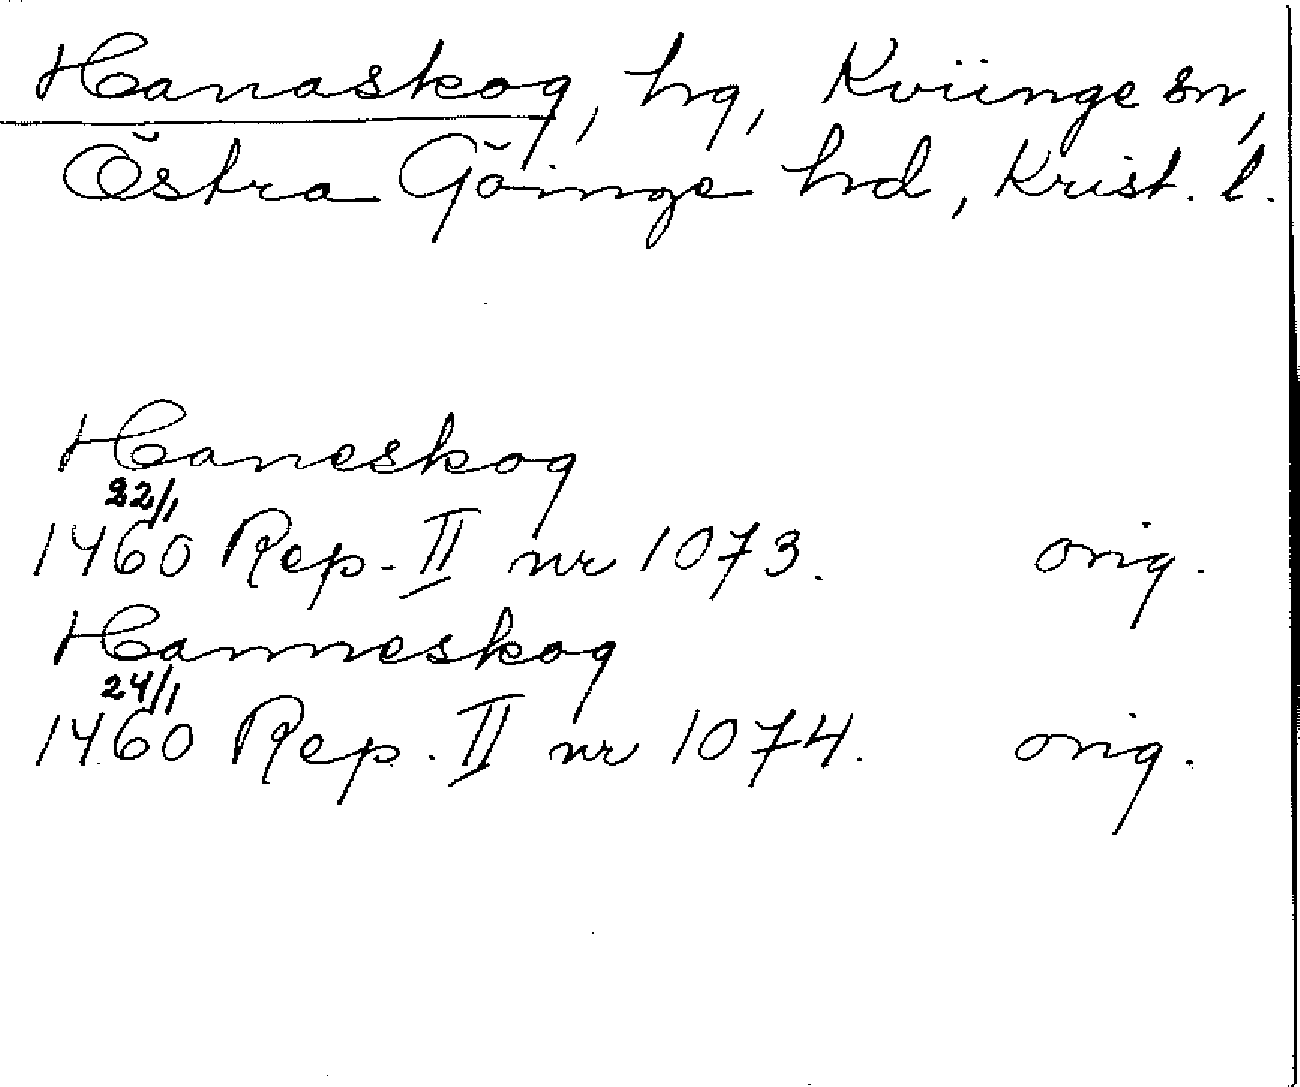 Hanaskog, hg, Kviinge sn,
Östra Göinge hd, Krist. l.
Haneskog
22/1
1460 Rep. II nr 1073. orig.
Hanneskog
24/1
1460 Rep. II nr 1074. orig.